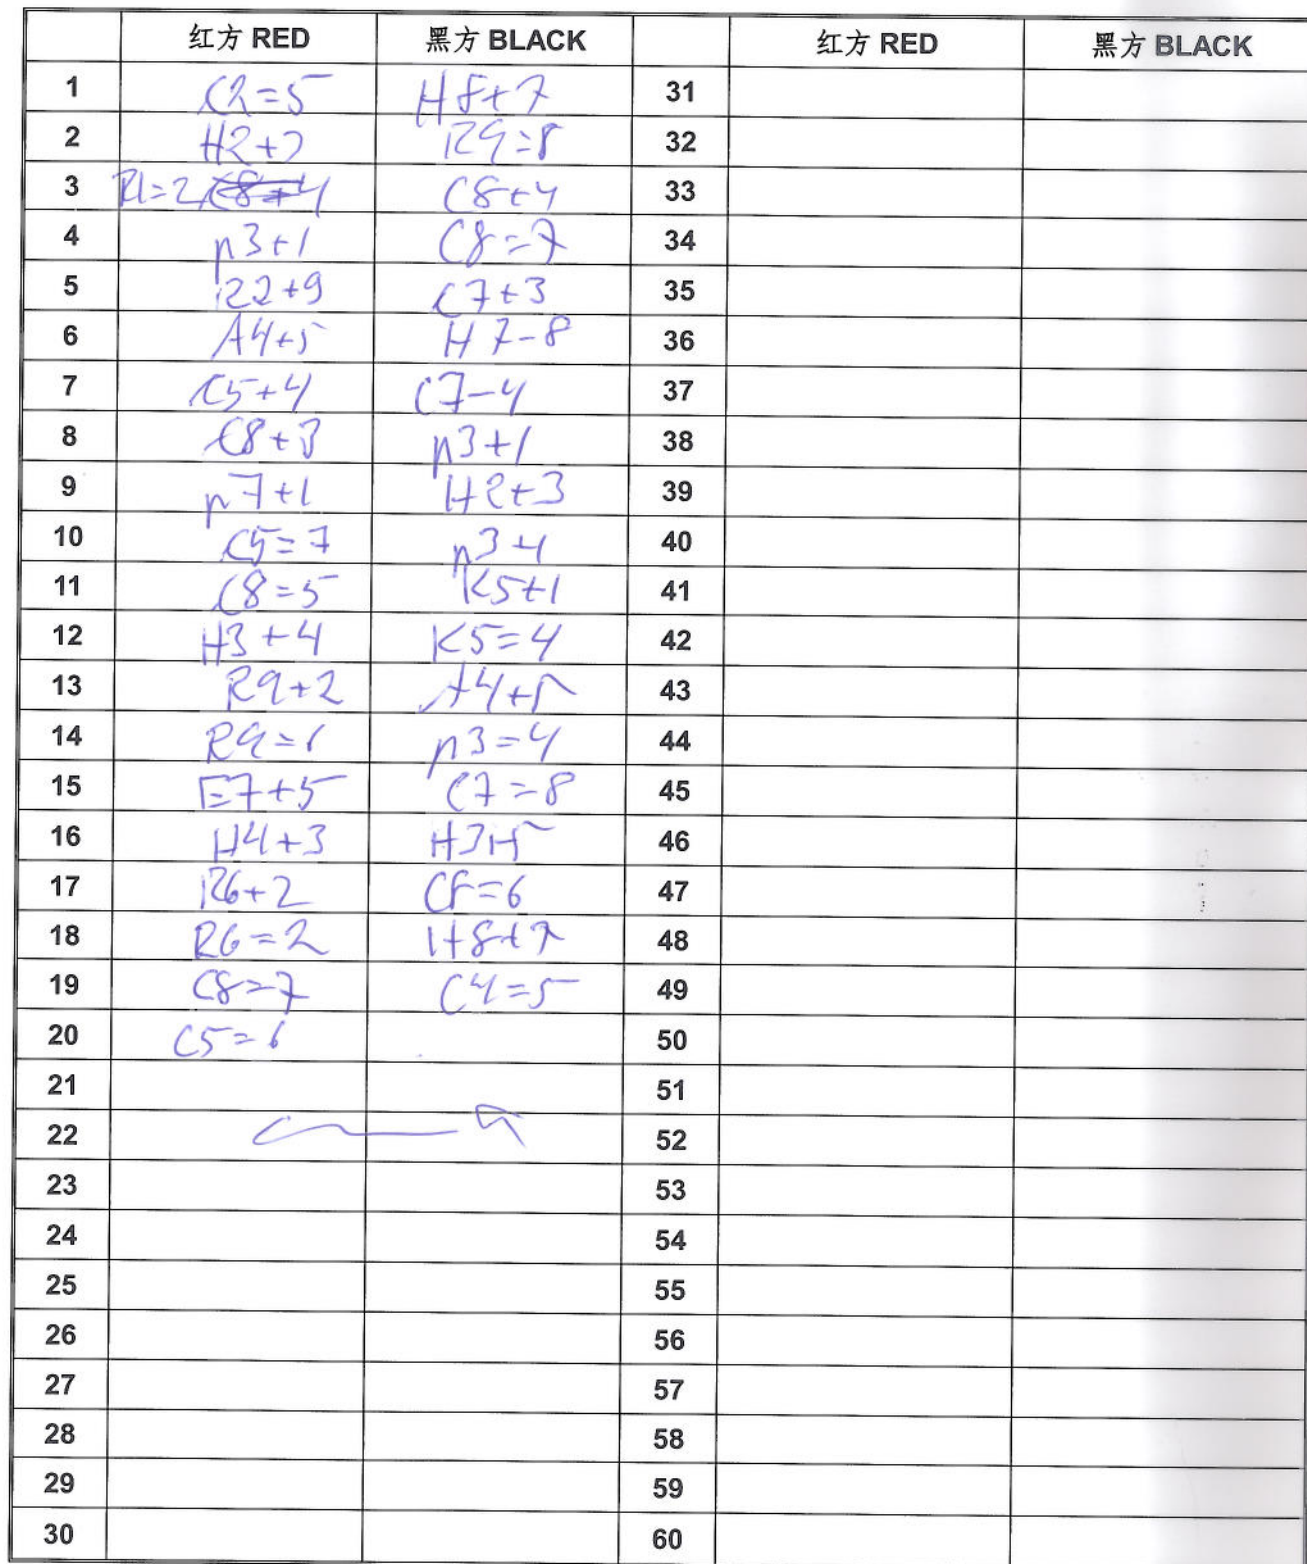 红方 RED 黑方 BLACK 红方 RED 黑方 BLACK
1 C2=5 H8+7 31
2 H2+3 R9=8 32
3 R1=2 C8+4 33
4 p3+1 C8=7 34
5 R2+9 C7+3 35
6 A4+5 H7-8 36
7 C5+4 C7-4 37
8 C8+3 p3+1 38
9 p7+1 H2+3 39
10 C5=7 p3+1 40
11 C8=5 K5+1 41
12 H3+4 K5=4 42
13 R9+2 A4+5 43
14 R9=6 p3=4 44
15 E7+5 C7=8 45
16 H4+3 46
17 R6+2 C8=6 47
18 R6=2 H8+7 48
19 C8=7 C4=5 49
20 C5=6 50
21 51
22 52
23 53
24 54
25 55
26 56
27 57
28 58
29 59
30 60